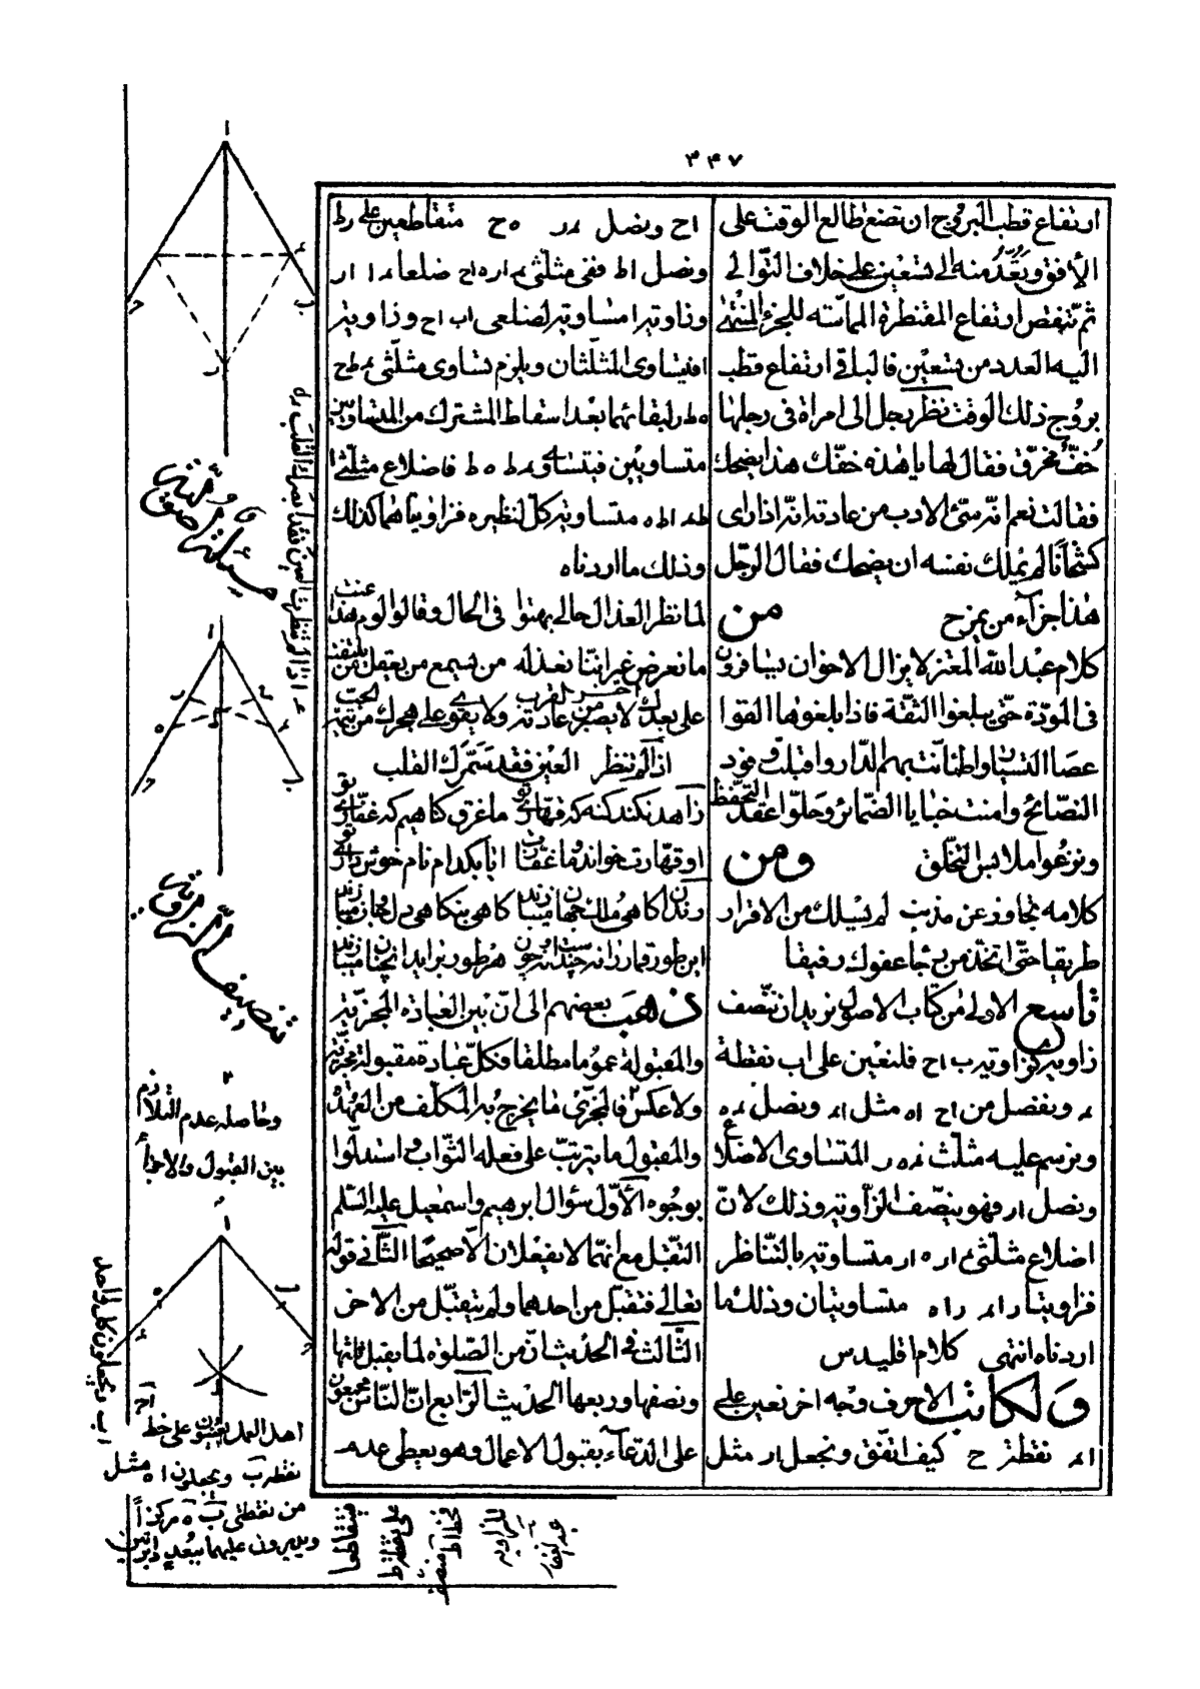 ٣٤٧
ارتفاع قطب البروج ان تضع طالع الوقت على
الأفق وتعّد منه الى تسعين على خلاف التوالي
ثم تنقص ارتفاع المقنطرة المماسّه للجزء المنتهى
اليه العدد من تسعين فالباقى ارتفاع قطب
بروج ذلك الوقت نظر رجل الى امراة فى رجلها
خفّ مخرّق فقال لها يا هذه خفّك هذا يضحك
فقالت نعم انّه سيّئ الادب من عادته انّه اذا راى
كشخانا لم يملك نفسه ان يضحك فقال الرّجل
هذا جزآء من يمزح من
كلام عبد الله المعتز لا يزال الاخوان يسافرون
فى المودّة حتى يبلغوا الثقة فاذا بلغوها القوا
عصا التسيار واطمأنت بهم الدّار واقبلت وفود
النصائح وامنت خبايا الضمائر وحلّوا عقد التحفّظ
ونزعوا ملابس التخلّق ومن
كلامه تجاوز عن مذنب لم يسلك من الاقرار
طريقا حتى اتخذ من رجا عفوك رفيقا
تاسع الاولى من كتاب الاصول نريد ان ننصف
زاوية كزاوية ب اح فلنعين على اب نقطة
ء ونفصل من اح اه مثل اء ونصل ء ه
ونرسم عليه مثلث ء ه ر المتساوى الاضلاع
ونصل ار فهو ينصّف الزّاوية وذلك لانّ
اضلاع مثلثى ء ار ه ار متساوية بالتّناظر
فزاويتا راء راه متساويتان وذلك ما
اردناه انتهى كلام اقليدس
ولكاتب الاحرف وجه اخر نعين على
اء نقطة ح كيف اتفق ونجعل ار مثل
اح ونصل ء ر ه ح متقاطعين على ط
ونصل اط ففى مثلثى ء ار ه اح ضلعا ء ا ار
وزاوية ا مساوية لضلعى اب اح وزاوية
ا فيتساوى المثلّثان ويلزم تساوى مثلّثى ء ط ح
ه ط ر لبقائهما بعد اسقاط المشترك من المتساويين
متساويين فيتساوى ء ط ه ط فاضلاع مثلّثى ا
ط ء اط ه متساوية كل لنظيره فزاويتاهما كذلك
وذلك ما اردناه
لما نظر العذال حالى بهتوا فى الحال وقالوا لوم هذا عنت
ما نعرض غير اننا نعذله من يسمع من يعقل من يلتفت
على بعدك لا يصبر من عادته القرب ولا يقوى على هجرك من تيّمه الحب
اذا لم تنظر العين فقد سمّرك القلب
زاهد نكند كنه كه قهارى تو ما غرق كناهيم كه غفّارى تو
او قهارت خواند وما غفارت ايا بكدام نام خوش دارى تو
رندان كاهى ملك جهان ميبازند كاهى بنكاهى دل وجان ميبازند
اين طور قمار را نه چندست و نه چون هر طور برايد انچنان ميبازند
ذهب بعضهم الى انّ بين العبادة المجزية
والمقبولة عموما مطلقا فكلّ عبادة مقبولة مجزّية
ولا عكس فالمجزى ما يخرج به المكلّف من العهدة
والمقبول ما يترتّب على فعله الثّواب واستدلّوا
بوجوه الأوّل سؤال ابرهيم واسمعيل عليه السّلم
التقبّل مع انهّما لا يفعلان الّا صحيحا الثّانى قوله
تعالى فتقبّل من احدهما ولم يتقبّل من الاخر
الثّالث فى الحديث انّ من الصّلوة لما يقبل ثلثها
ونصفها وربعها الحديث الرّابع انّ النّاس مجمعون
على الدّعآء بقبول الاعمال وهو يعطى عدم
ا
ح
ب
ر
ا
ر
ح
ه
ط
ح
ب
تنصيف الزاوية
وحاصله عدم التلازم
بين القبول والاجزآء
ا
ب
ه
اهل العمل يعينون على خط
نقطة ب ويجعلون اه مثل
من نقطتى ب ه مركزاً
ويديرون عليهما ببعد دايرتين
اب ويجعلون كل واحد
يتقاطعا
على نقطة ط
فخط اط منصف
للزاوية